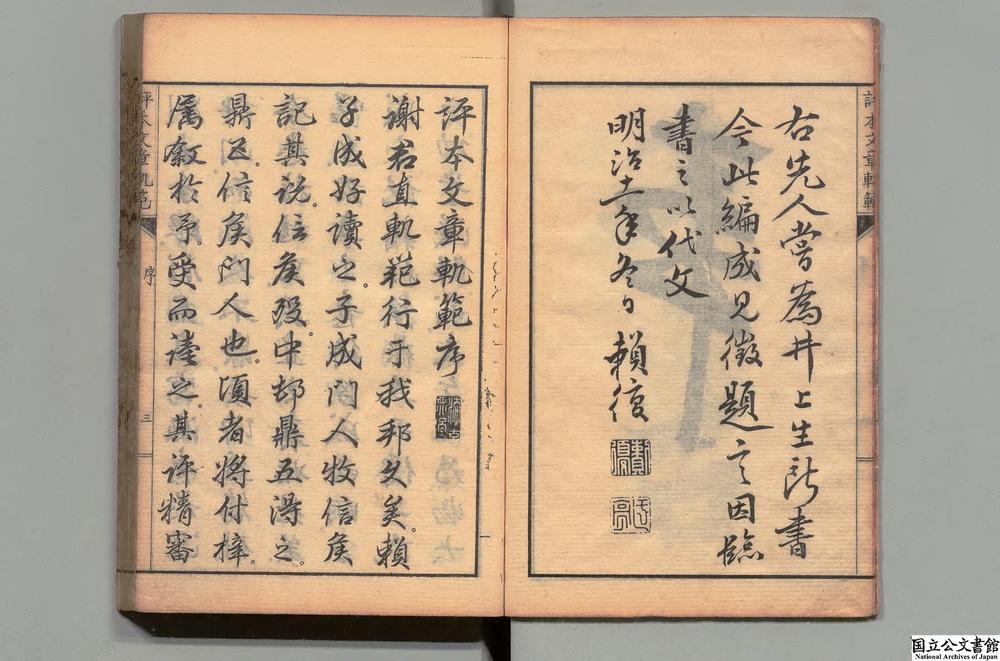 右先人嘗為井上生所書
今此編成見徵題言因臨
書之以代文
明治十年冬日 賴復
評本文章軌範序
謝君直軌範行于我邦久矣。賴
子成好讀之。子成門人牧信矦
記其說。信矦歿。中邨鼎五得之。
鼎五。信矦門人也。頃者將付梓。
属敘於予。受而讀之。其評精審
評本文章軌範
序
三
国立公文書館
National Archives of Japan